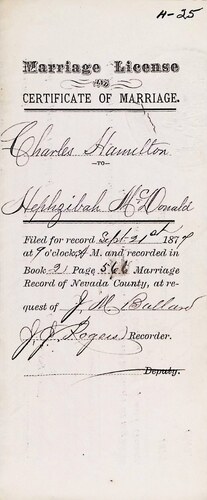 A-25
Marriage License
AND
CERTIFICATE OF MARRIAGE.
Charles Hamilton
—TO—
Hephzibah McDonald
Filed for record Sept 21st 1877
at 9 o'clock, A M. and recorded in
Book 2, Page 566 Marriage
Record of Nevada County, at re-
quest of J. M. Ballard
J. J. Rogers Recorder.
Deputy.